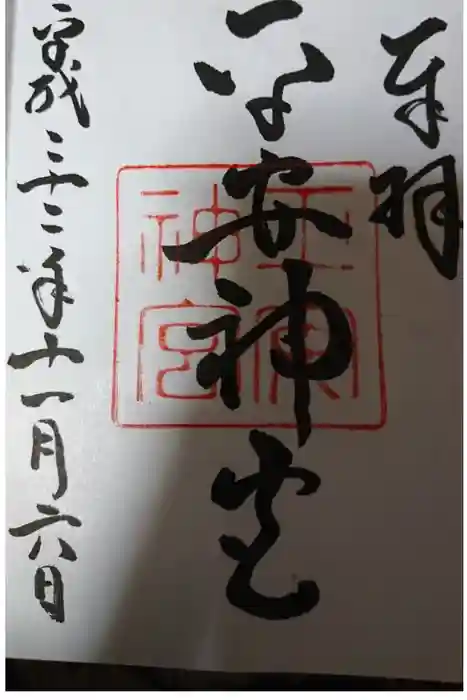 奉拝
平安神宮
平成二十二年十一月六日